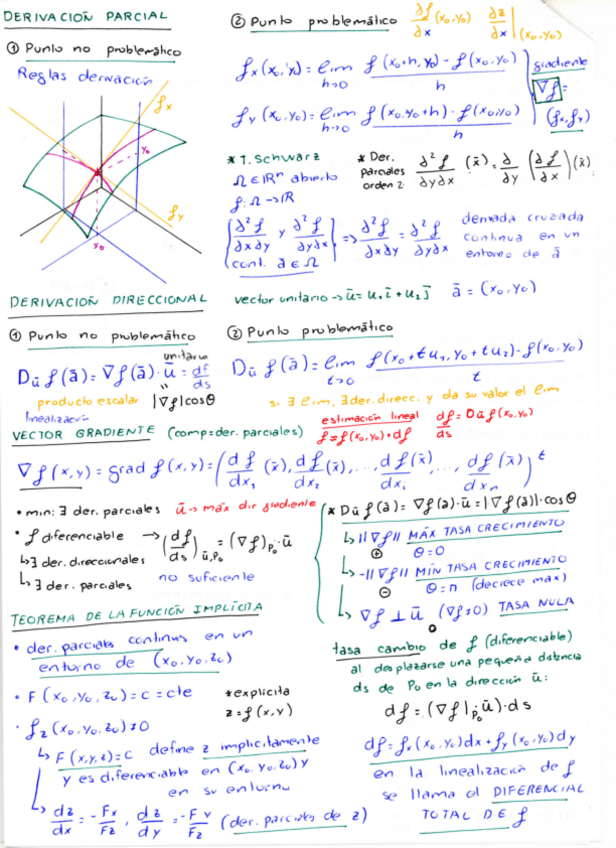 DERIVACIÓN PARCIAL
① Punto no problemático
Reglas derivación
fx
y₀
fy
x₀
② Punto problemático ∂f/∂x (x₀,y₀) ∂z/∂x |(x₀,y₀)
fx(x₀,y₀) = lim h→0 f(x₀+h, y₀) - f(x₀,y₀) / h
fy(x₀,y₀) = lim h→0 f(x₀,y₀+h) - f(x₀,y₀) / h
gradiente
∇f =
(fx,fy)
* T. Schwarz
Ω∈ℝⁿ abierto
f: Ω→ℝ
* Der. parciales orden 2: ∂²f/∂y∂x (x̄) = ∂/∂y (∂f/∂x)(x̄)
{∂²f/∂x∂y y ∂²f/∂y∂x cont. ā∈Ω} ⇒ ∂²f/∂x∂y = ∂²f/∂y∂x
derivada cruzada
continua en un
entorno de ā
DERIVACIÓN DIRECCIONAL
vector unitario → ū = u₁ī + u₂j̄ ā = (x₀,y₀)
① Punto no problemático
unitario
Dū f(ā) = ∇f(ā)·ū = df/ds
producto escalar |∇f|cosθ
linealización
② Punto problemático
Dū f(ā) = lim t→0 f(x₀+tu₁, y₀+tu₂) - f(x₀,y₀) / t
si ∃ lim, ∃ der. direcc. y da su valor el lim
estimación lineal df/ds = Dū f(x₀,y₀)
f = f(x₀,y₀) + df
VECTOR GRADIENTE (comp = der. parciales)
∇f(x,y) = grad f(x,y) = (df/dx₁ (x̄), df/dx₂ (x̄), ..., df/dxᵢ (x̄), ..., df/dxₙ (x̄))ᵗ
• min: ∃ der. parciales ū → máx dir gradiente
• f diferenciable → (df/ds)ū,P₀ = (∇f)P₀·ū
↳ ∃ der. direccionales
↳ ∃ der. parciales no suficiente
* Dū f(ā) = ∇f(ā)·ū = |∇f(ā)|·cosθ
↳ ||∇f|| MÁX TASA CRECIMIENTO
⊕ θ=0
↳ -||∇f|| MÍN TASA CRECIMIENTO
⊖ θ=π (decrece max)
↳ ∇f ⊥ ū (∇f≠0) TASA NULA
0
TEOREMA DE LA FUNCIÓN IMPLÍCITA
• der. parciales continuas en un
entorno de (x₀,y₀,z₀)
• F(x₀,y₀,z₀) = c = cte
* explícita
z = f(x,y)
• fz(x₀,y₀,z₀) ≠ 0
↳ F(x,y,z)=c define z implícitamente
y es diferenciable en (x₀,y₀,z₀) y
en su entorno
↳ dz/dx = -Fx/Fz, dz/dy = -Fy/Fz (der. parciales de z)
tasa cambio de f (diferenciable)
al desplazarse una pequeña distancia
ds de P₀ en la dirección ū:
df = (∇f|P₀·ū)·ds
df = fx(x₀,y₀)dx + fy(x₀,y₀)dy
en la linealización de f
se llama el DIFERENCIAL
TOTAL DE f